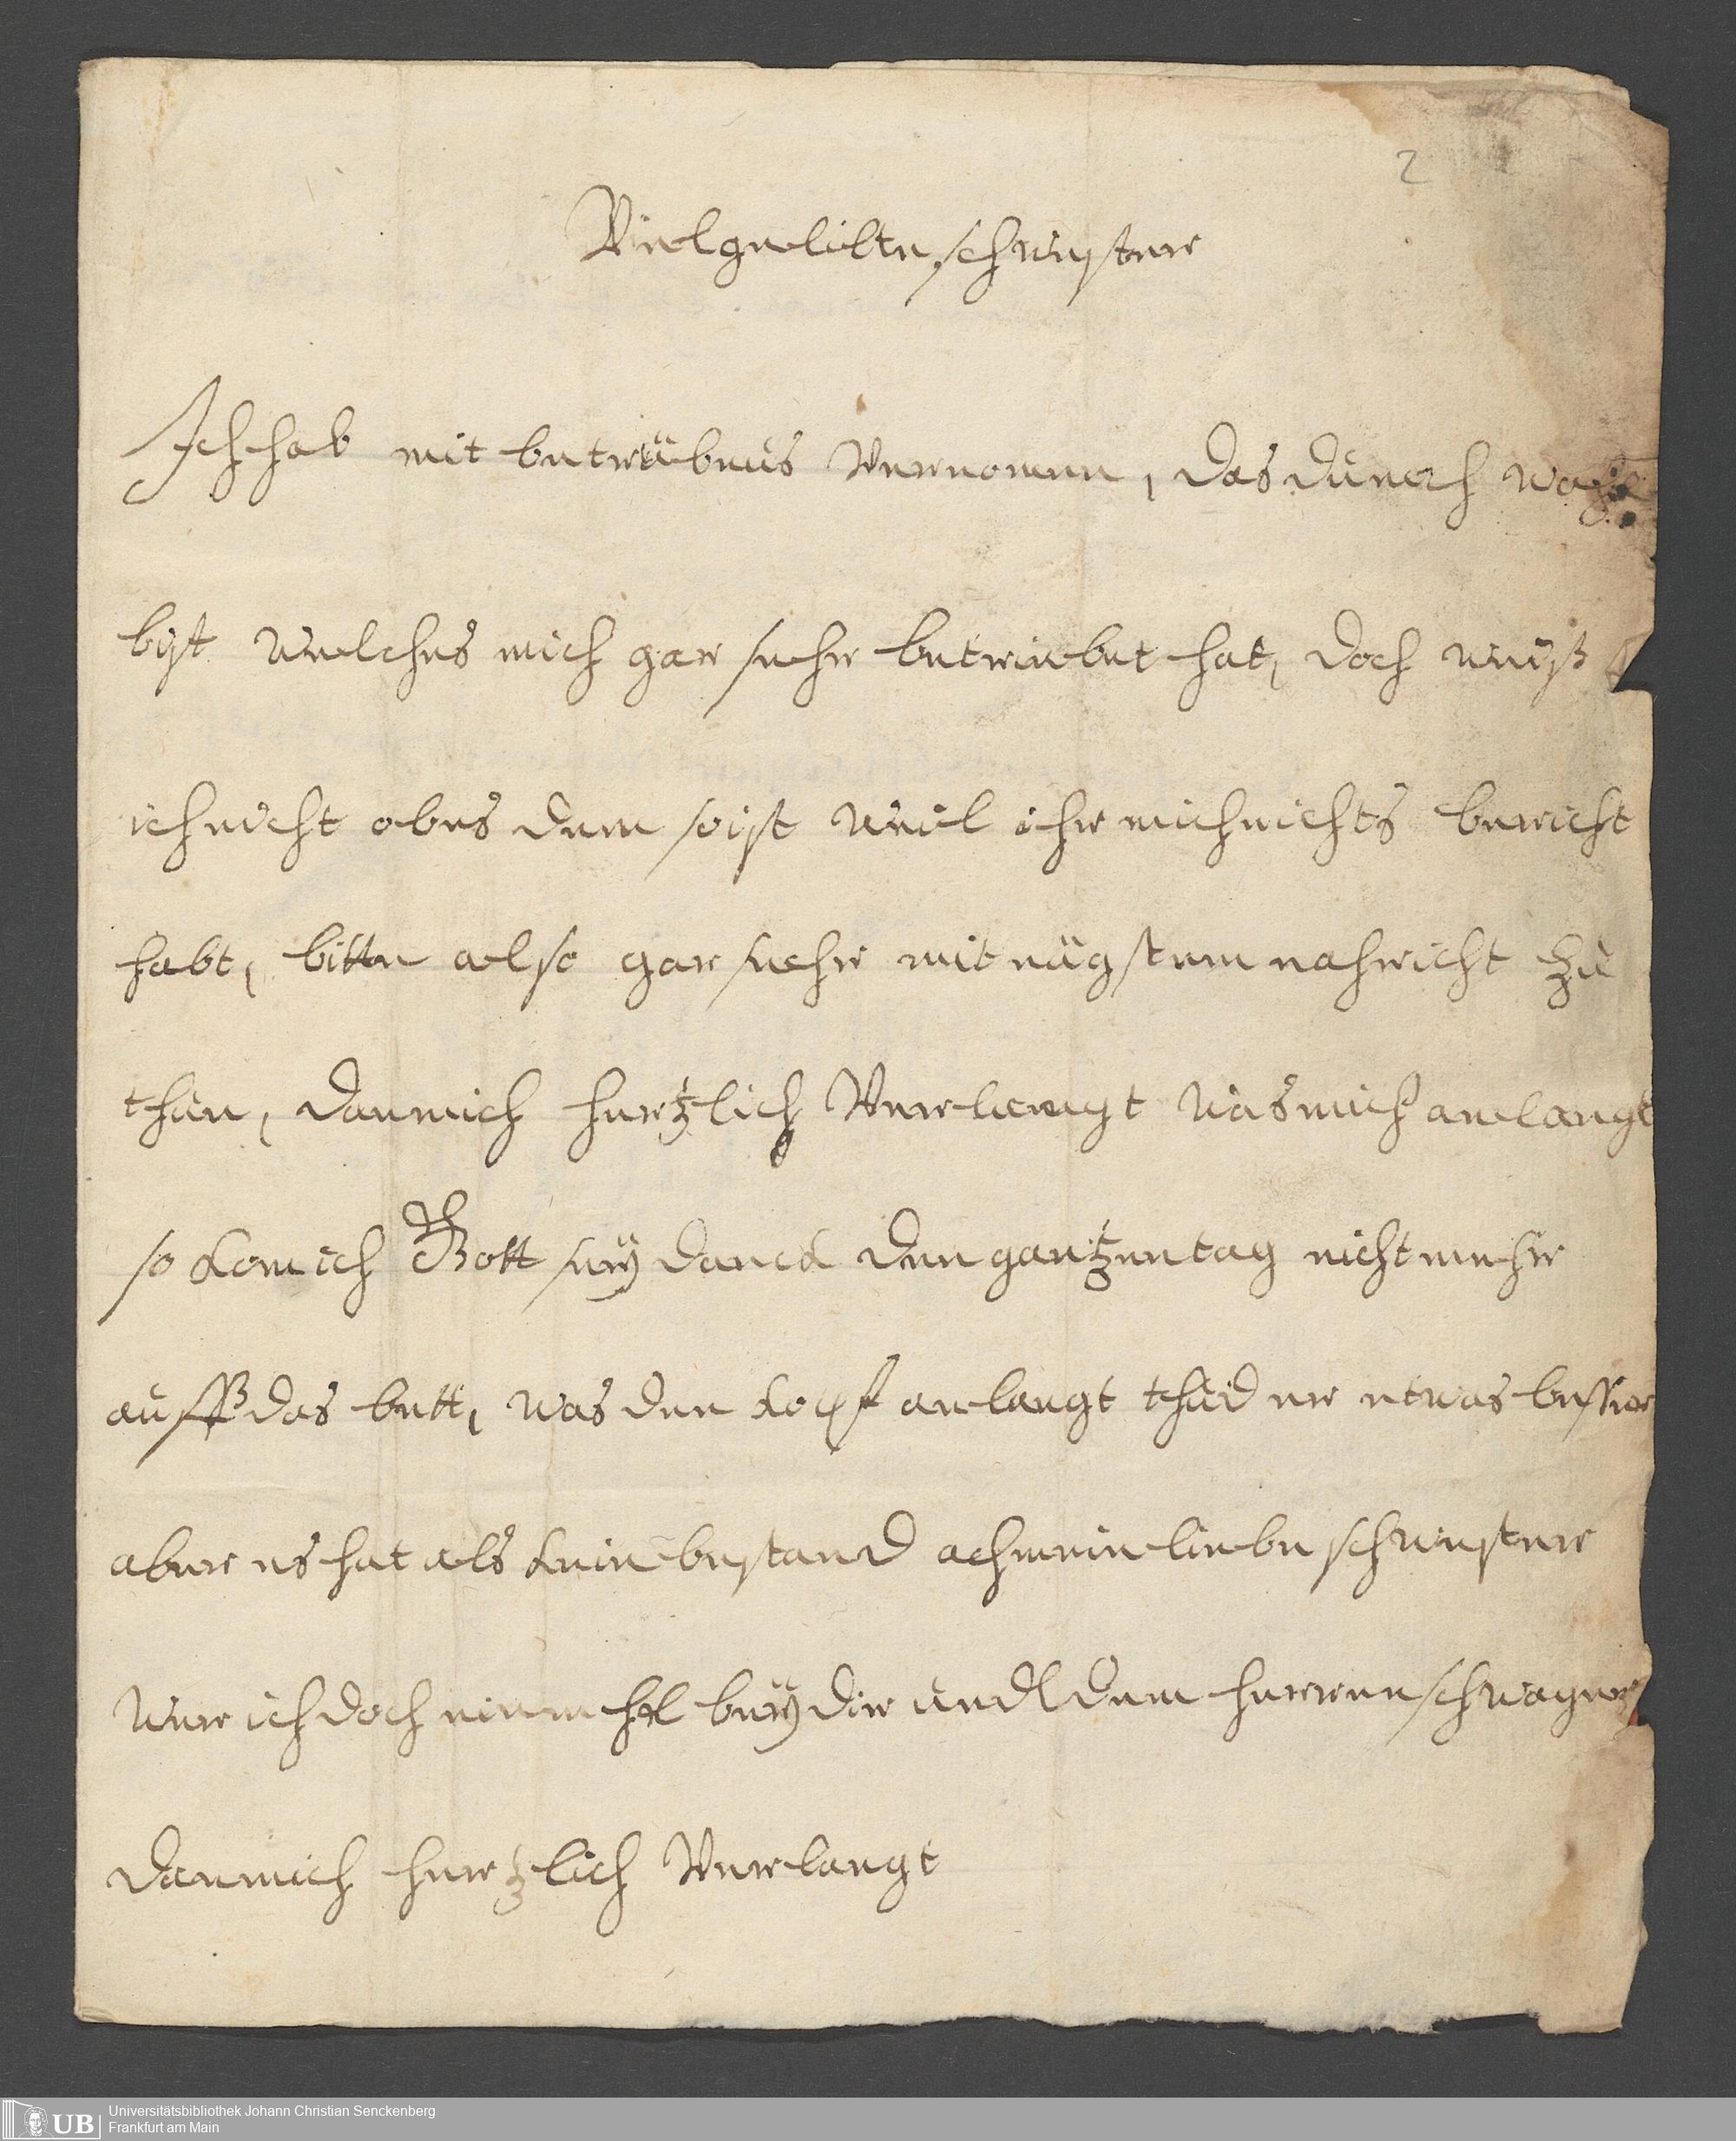 2
Vielgeliebte schwyster
Ich hab mit betrübnus Vernomen, das du nach
bist welches mich gar sehr betriebet hat, doch weiß
ich nicht ob es dem so ist weil ihr mich nichts bericht
habt, bitte also gar sehr mit nägstem nahricht zu
thun, dan mich hertzlich Verlangt was mich anlangt
so kom ich Gott seÿ danck den gantzen tag nicht mehr
auff das bett, was den kopf anlangt thud er etwas besser
aber es hat als kein bestand ach mein liebe schwester
wer ich doch einmahl beÿ dir und dem herren schwager
dan mich hertzlich Verlangt
UB
Universitätsbibliothek Johann Christian Senckenberg
Frankfurt am Main